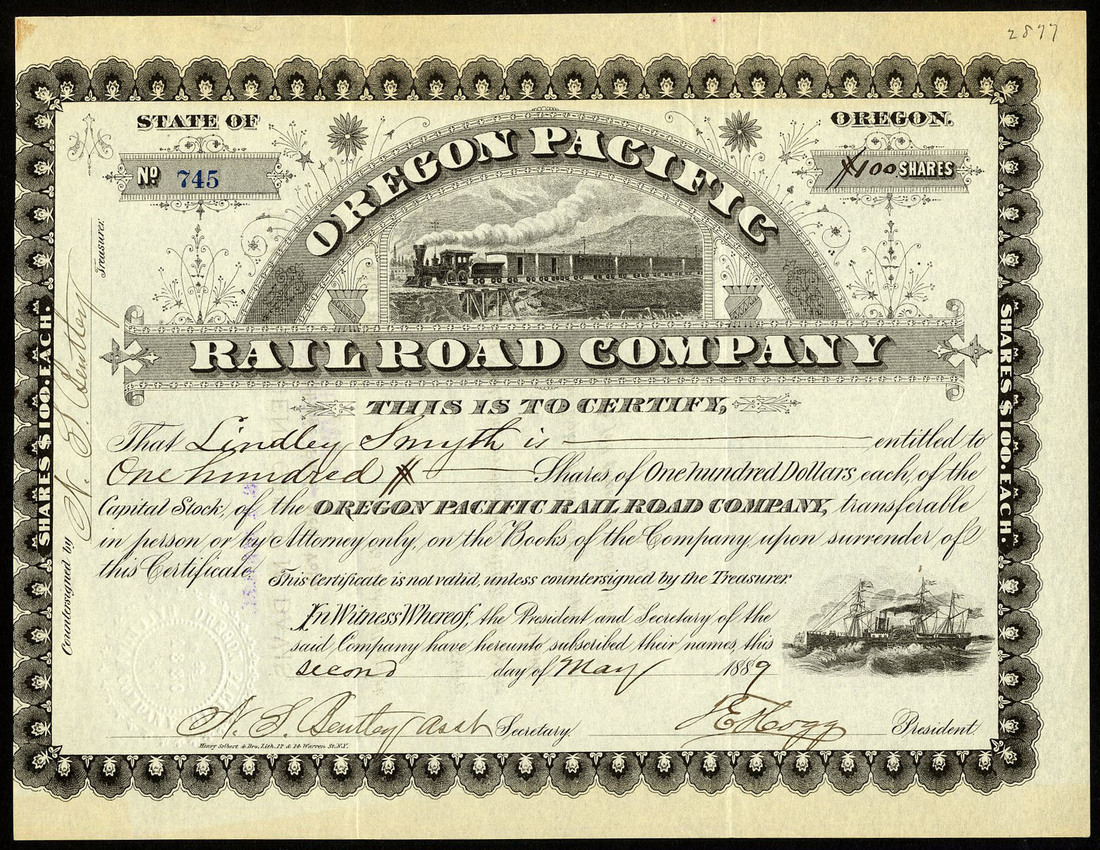 2877
STATE OF
OREGON.
No 745
100 SHARES
OREGON PACIFIC
RAIL ROAD COMPANY
THIS IS TO CERTIFY,
That Lindley Smyth is entitled to
One hundred Shares of One hundred Dollars, each, of the
Capital Stock, of the OREGON PACIFIC RAIL ROAD COMPANY, transferable
in person or by Attorney only, on the Books of the Company upon surrender of
this Certificate.
This Certificate is not valid, unless countersigned by the Treasurer
In Witness Whereof, the President and Secretary of the
said Company have hereunto subscribed their names, this
second day of May 1889
N. S. Bentley asst Secretary.
J E Hogg President.
Henry Seibert & Bro. Lith. 12 & 14 Warren St. N.Y.
Countersigned by N. S. Bentley Treasurer.
SHARES $100. EACH.
SHARES $100. EACH.